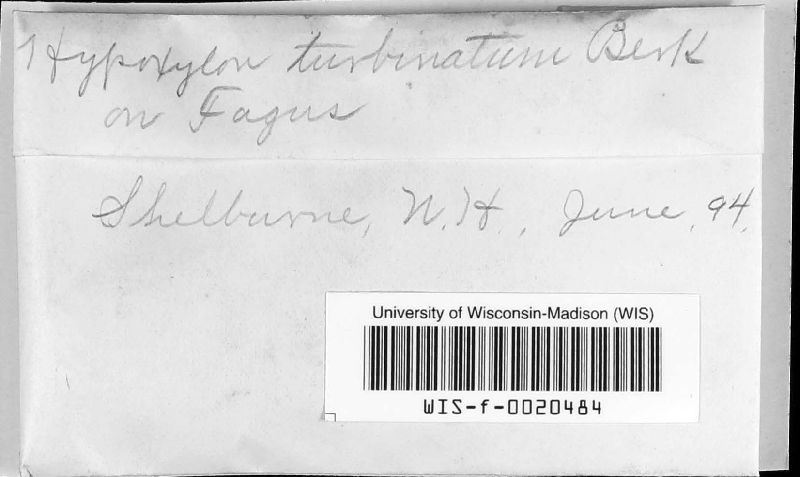 Hypoxylon turbinatum Berk
on Fagus
Shelburne, N.H., June, 94.
University of Wisconsin-Madison (WIS)
WIS-f-0020484